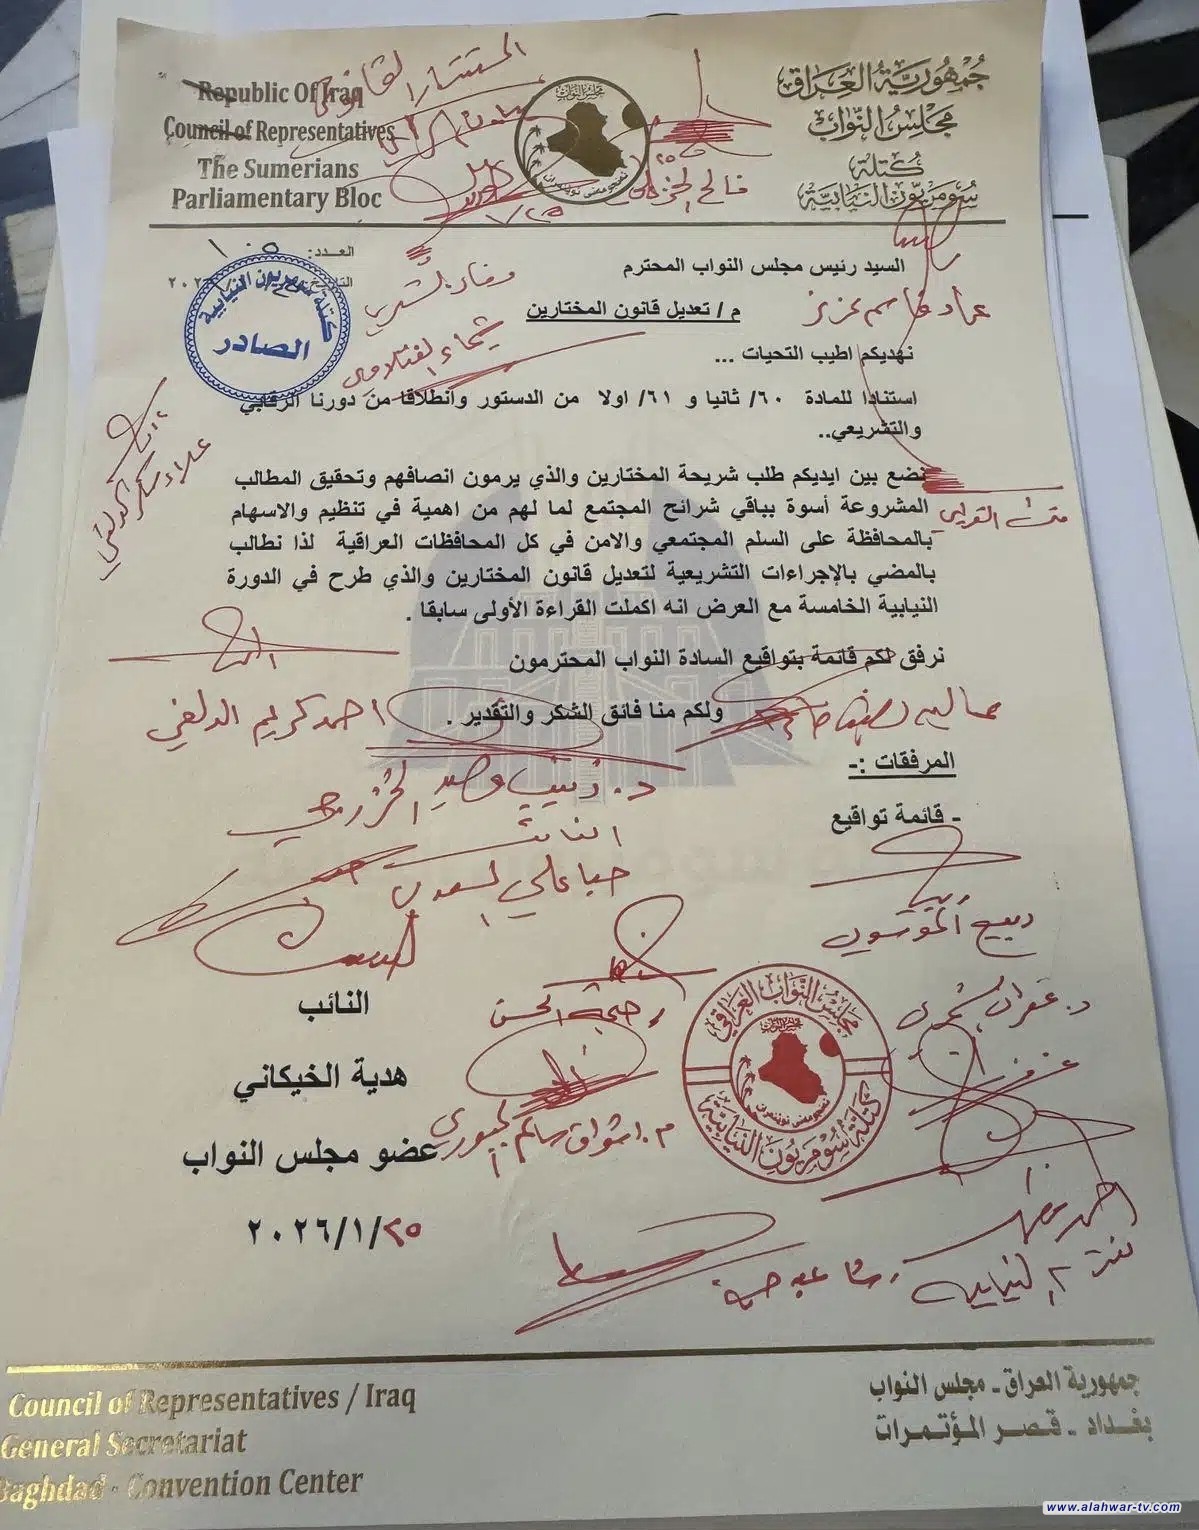 Republic Of Iraq
Council of Representatives
The Sumerians
Parliamentary Bloc
جمهورية العراق
مجلس النواب
كتلة
سومريون النيابية
مجلس النواب
المستشار القانوني
فالح الخزعلي
العدد: ١٠٥
التاريخ
٢٠٢٦
كتلة سومريون النيابية
الصادر
السيد رئيس مجلس النواب المحترم
عماد قاسم عزيز
م / تعديل قانون المختارين
شيماء الفتلاوي
نهديكم اطيب التحيات ...
استنادا للمادة ٦٠/ ثانيا و ٦١/ اولا من الدستور وانطلاقا من دورنا الرقابي
والتشريعي..
علاء سكر الدلفي
نضع بين ايديكم طلب شريحة المختارين والذي يرمون انصافهم وتحقيق المطالب
المشروعة أسوة بباقي شرائح المجتمع لما لهم من اهمية في تنظيم والاسهام
بالمحافظة على السلم المجتمعي والامن في كل المحافظات العراقية لذا نطالب
بالمضي بالإجراءات التشريعية لتعديل قانون المختارين والذي طرح في الدورة
النيابية الخامسة مع العرض انه اكملت القراءة الأولى سابقا .
نرفق لكم قائمة بتواقيع السادة النواب المحترمون
ولكم منا فائق الشكر والتقدير .
احمد كريم الدلفي
المرفقات :-
- قائمة تواقيع
د. زينب وحيد الخزرجي
النائب
صبا علي السعدي
ربيع الموسوي
د. غفران الشمري
النائب
هدية الخيكاني
عضو مجلس النواب
٢٠٢٦/١/٢٥
م. اشواق سالم الجبوري
مجلس النواب العراقي
كتلة سومريون النيابية
Council of Representatives / Iraq
General Secretariat
Baghdad - Convention Center
جمهورية العراق - مجلس النواب
بغداد - قصر المؤتمرات
www.alahwar-tv.com